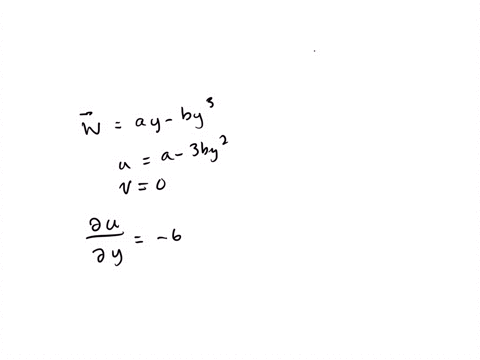 w⃗ = ay - by³
u = a - 3by²
v = 0
∂u/∂y = -6